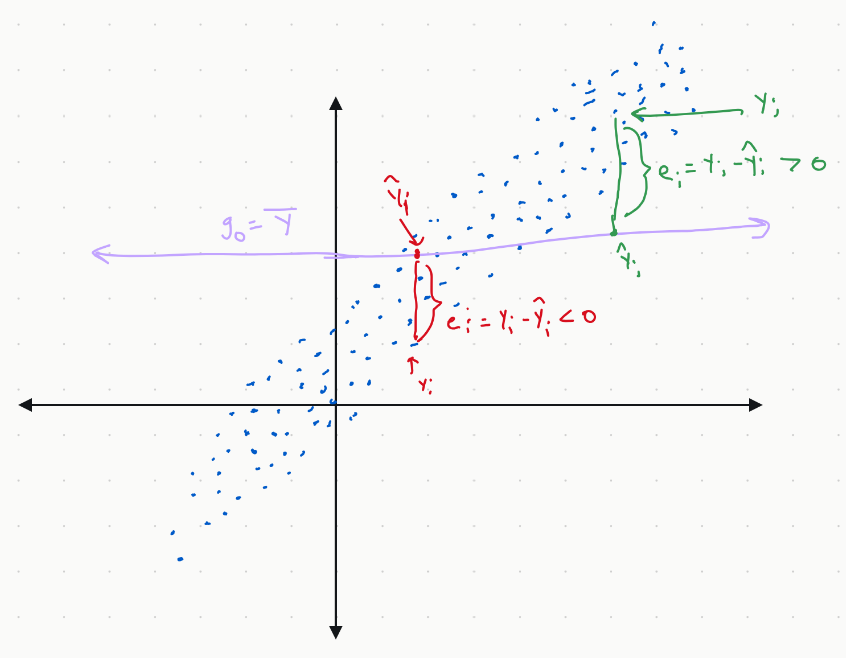 yᵢ
eᵢ = yᵢ - ŷᵢ > 0
ŷᵢ
g₀ = Y̅
ŷᵢ
eᵢ = yᵢ - ŷᵢ < 0
yᵢ